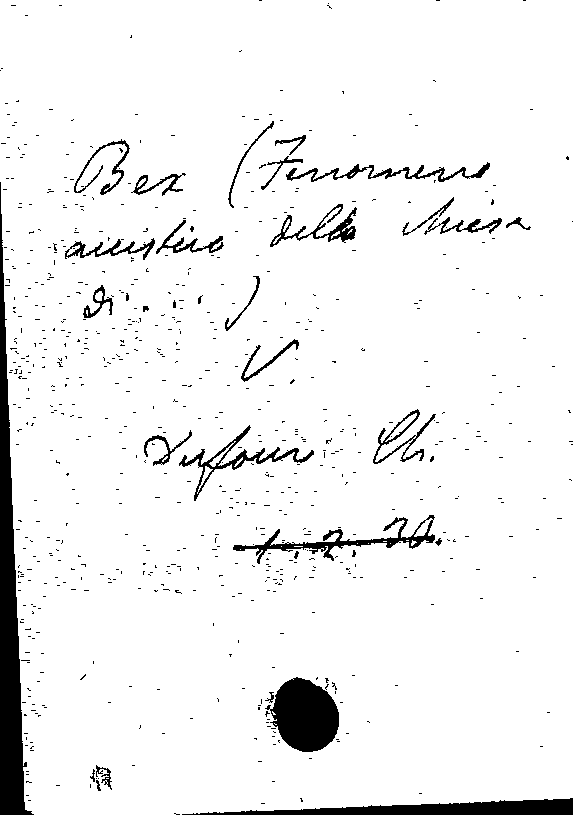 Bex (Fenomeno
acustico della Chiesa
di . . . )
V.
Dufour Ch.
1. 2. 32.